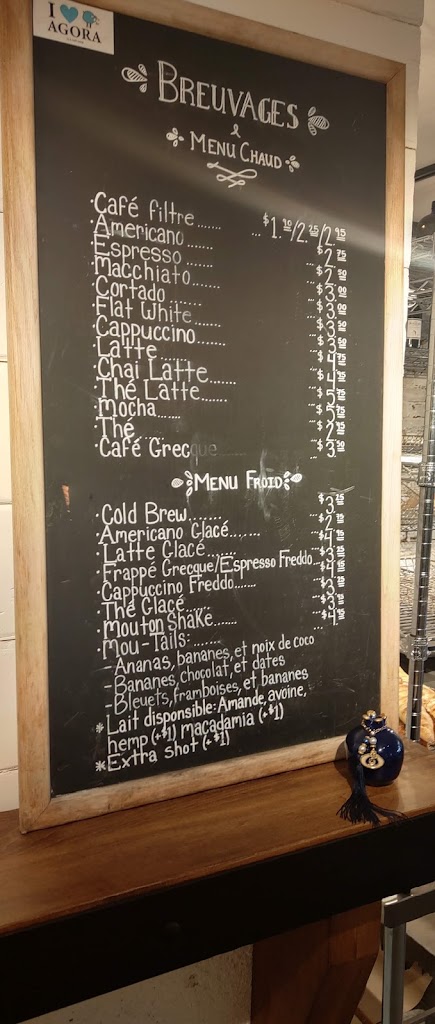 I ♥
AGORA
BREUVAGES
&
MENU CHAUD
·Café filtre....... ...$1.90/2.25/2.95
·Americano....... ...$2.75
·Espresso....... ...$2.50
·Macchiato....... ...$3.00
·Cortado....... ...$3.00
·Flat White....... ...$3.50
·Cappuccino....... ...$3.50
·Latte.......
·Chai Latte.......
·Thé Latte.......
·Mocha.......
·Thé.......
·Café Grecque....... ...$3.50
MENU FROID
·Cold Brew.......
·Americano Glacé.......
·Latte Glacé.......
·Frappé Grecque/Espresso Freddo...
·Cappuccino Freddo.......
·Thé Glacé.......
·Mouton Shake.......
·Mou-Tails:.......
-Ananas, bananes, et noix de coco
-Bananes, chocolat, et dates
-Bleuets, framboises, et bananes
*Lait disponible: Amande, avoine,
hemp (+$1) macadamia (+$1)
*Extra shot (+$1)